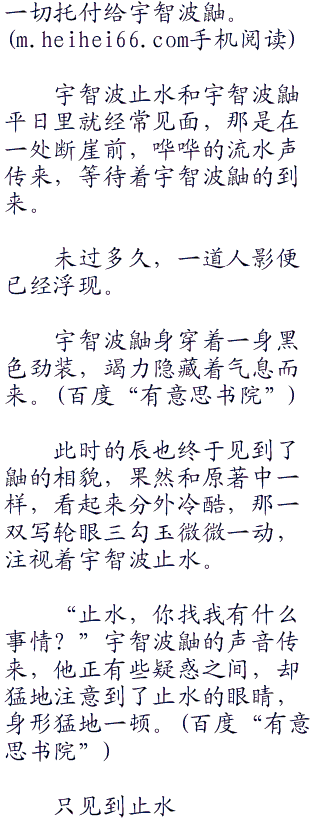 一切托付给宇智波鼬。
(m.heihei66.com手机阅读)
宇智波止水和宇智波鼬
平日里就经常见面，那是在
一处断崖前，哗哗的流水声
传来，等待着宇智波鼬的到
来。
未过多久，一道人影便
已经浮现。
宇智波鼬身穿着一身黑
色劲装，竭力隐藏着气息而
来。(百度“有意思书院”)
此时的辰也终于见到了
鼬的相貌，果然和原著中一
样，看起来分外冷酷，那一
双写轮眼三勾玉微微一动，
注视着宇智波止水。
“止水，你找我有什么
事情？”宇智波鼬的声音传
来，他正有些疑惑之间，却
猛地注意到了止水的眼睛，
身形猛地一顿。(百度“有意
思书院”)
只见到止水